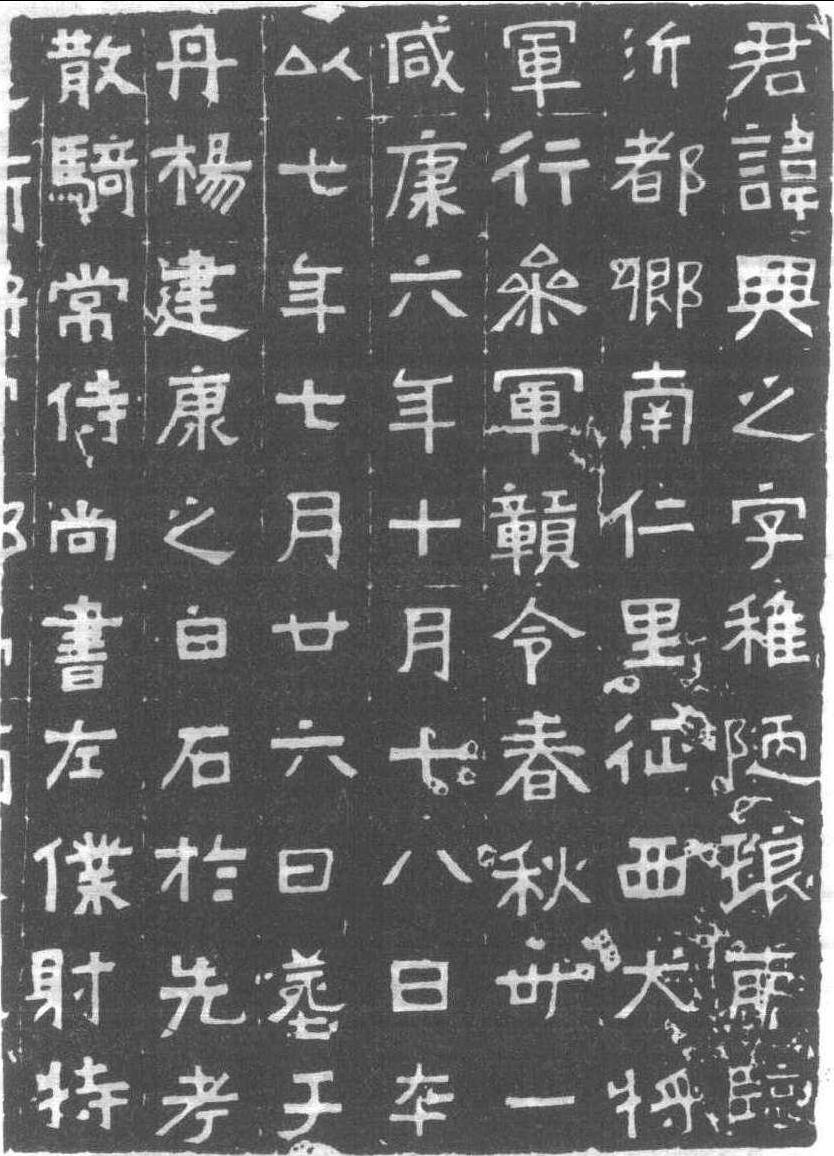 君諱興之字稚陋琅耶臨
沂都鄉南仁里征西大將
軍行參軍贛令春秋卅一
咸康六年十月十八日卒
以七年七月廿六日葬于
丹楊建康之白石於先考
散騎常侍尚書左僕射特